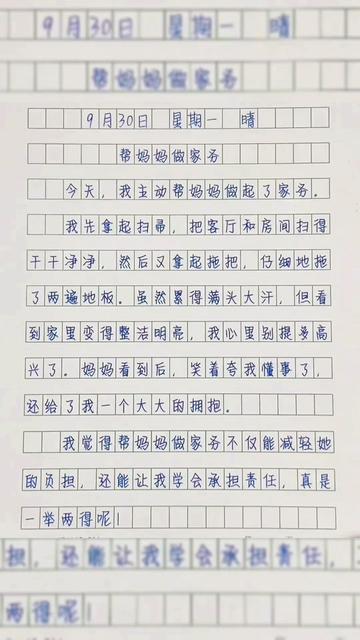 9月30日 星期一 晴
帮妈妈做家务
9月30日 星期一 晴
帮妈妈做家务
今天，我主动帮妈妈做起了家务。
我先拿起扫帚，把客厅和房间扫得
干干净净，然后又拿起拖把，仔细地拖
了两遍地板。虽然累得满头大汗，但看
到家里变得整洁明亮，我心里别提多高
兴了。妈妈看到后，笑着夸我懂事了，
还给了我一个大大的拥抱。
我觉得帮妈妈做家务不仅能减轻她
的负担，还能让我学会承担责任，真是
一举两得呢！
担，还能让我学会承担责任，
两得呢！